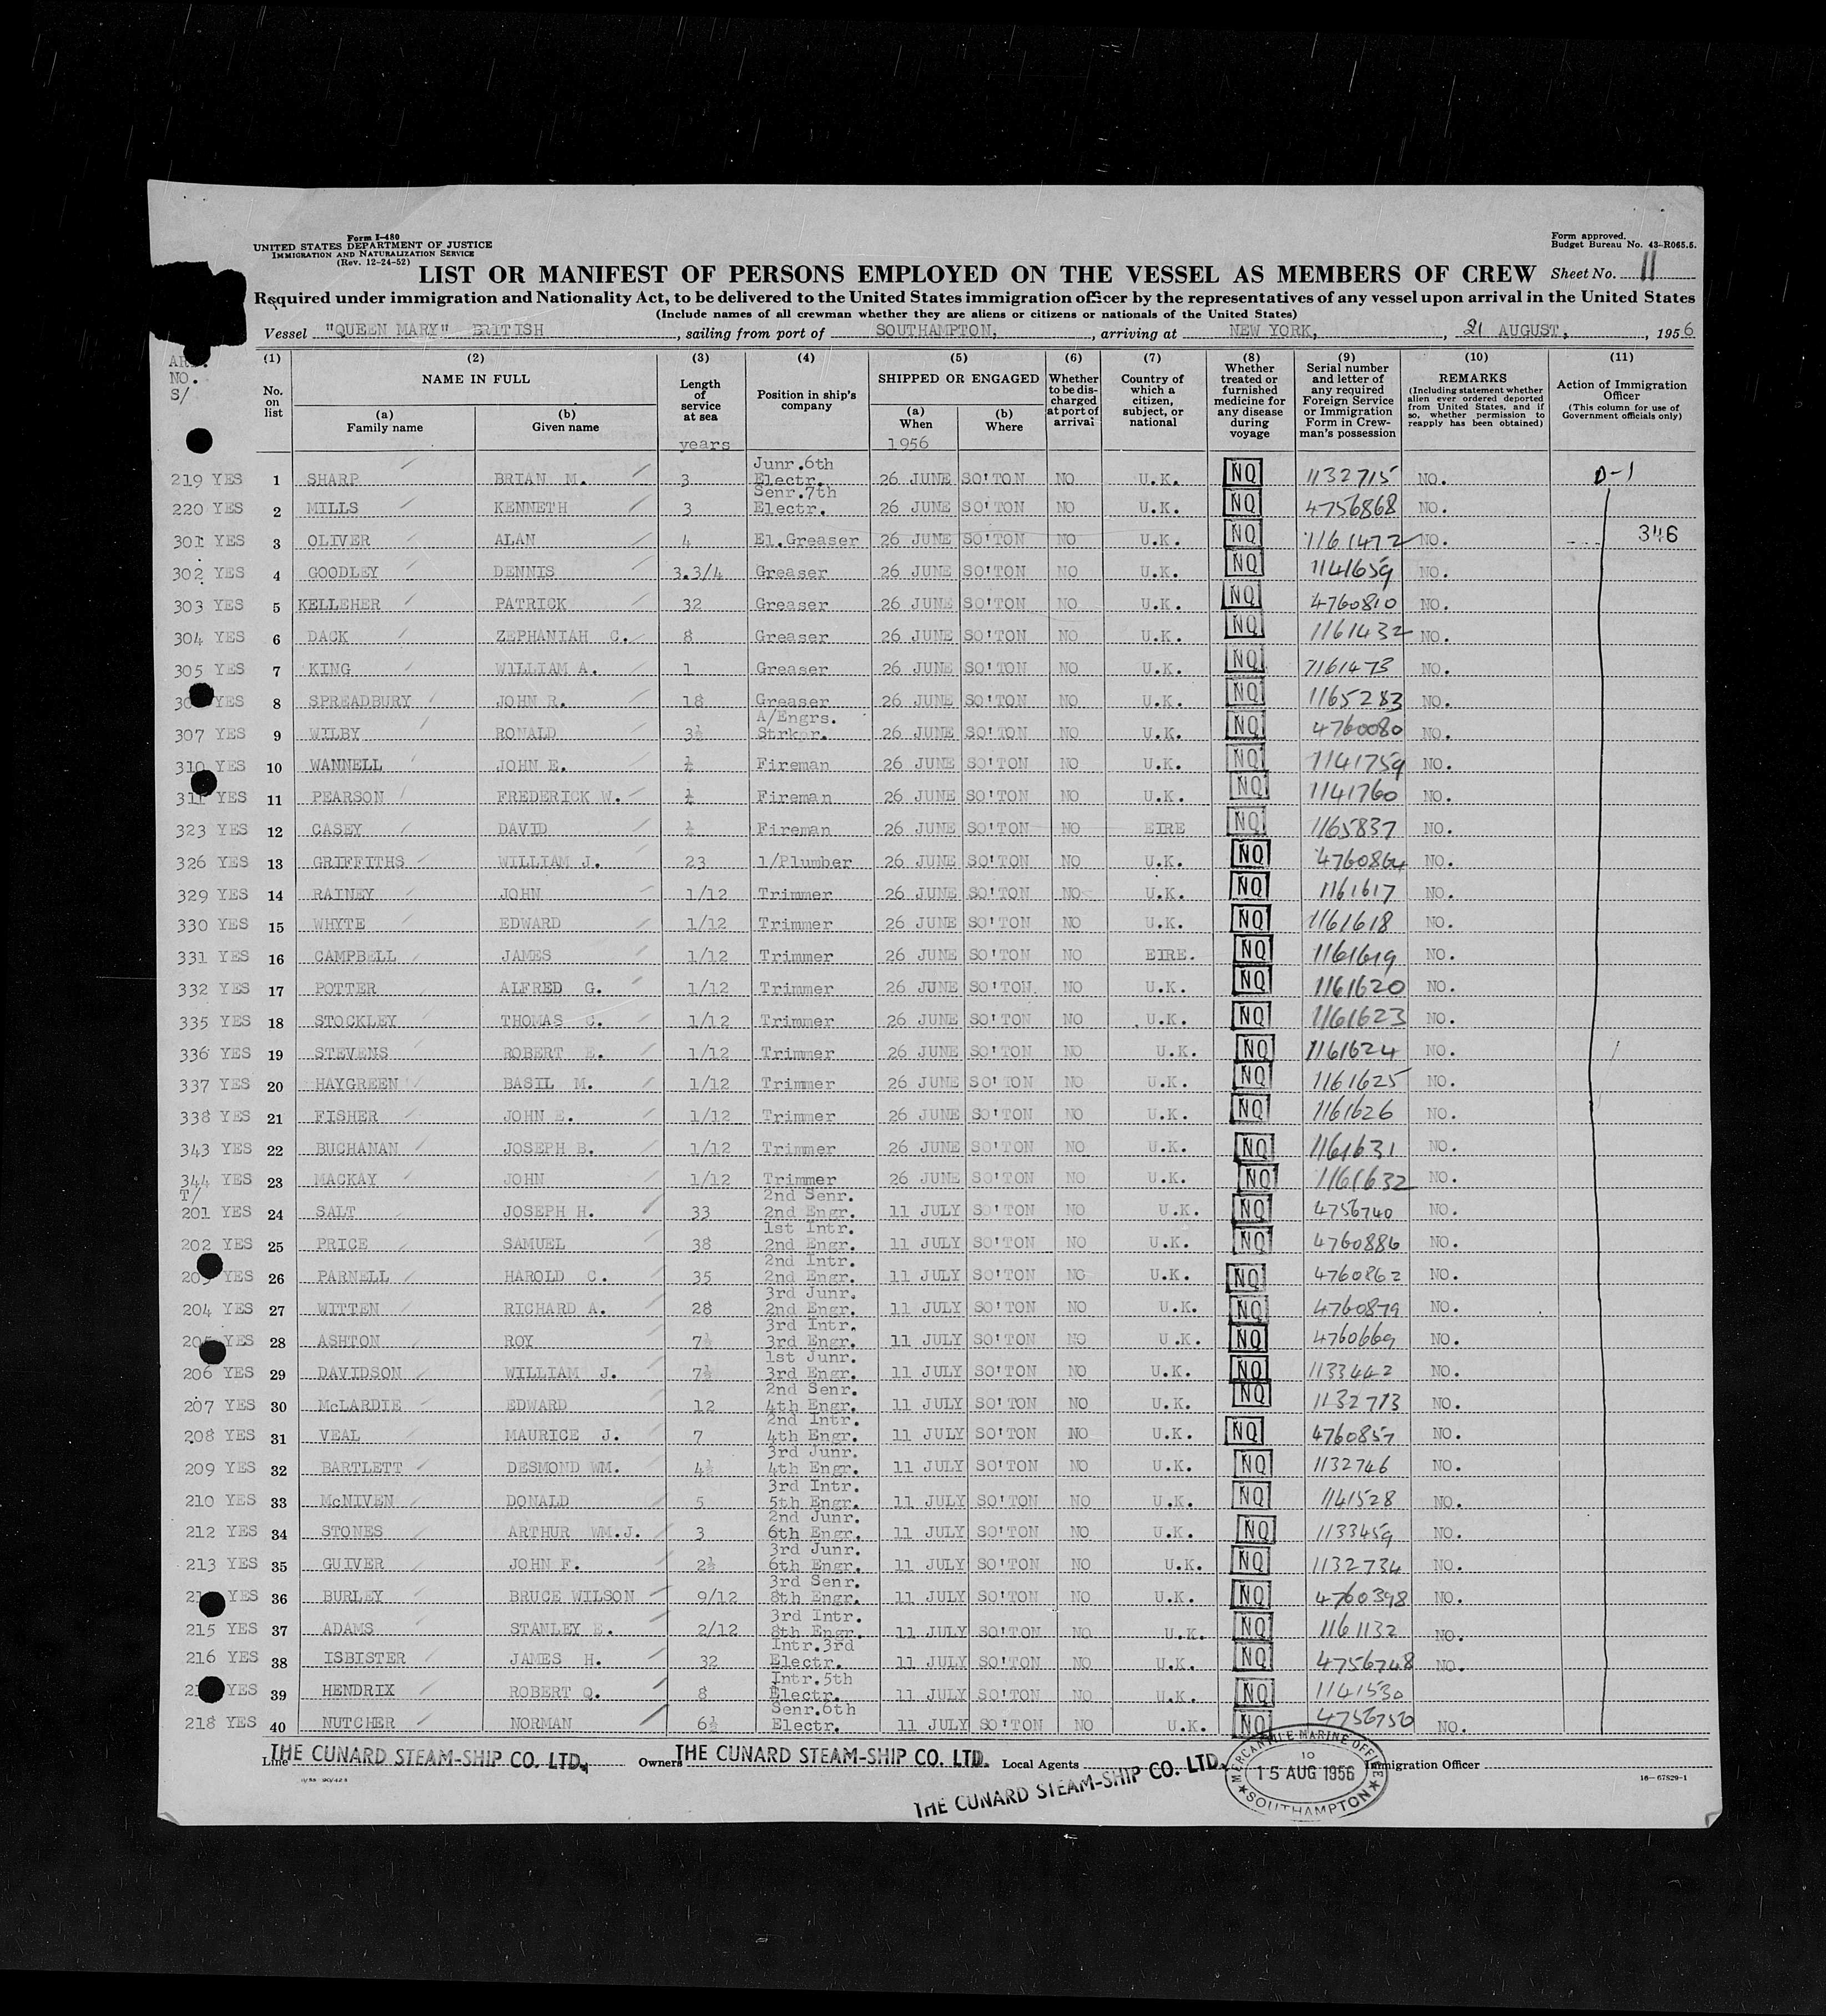 Form I-480
UNITED STATES DEPARTMENT OF JUSTICE
IMMIGRATION AND NATURALIZATION SERVICE
(Rev. 12-24-52)
Form approved.
Budget Bureau No. 43-R065.5.
LIST OR MANIFEST OF PERSONS EMPLOYED ON THE VESSEL AS MEMBERS OF CREW Sheet No. 11
Required under immigration and Nationality Act, to be delivered to the United States immigration officer by the representatives of any vessel upon arrival in the United States
(Include names of all crewman whether they are aliens or citizens or nationals of the United States)
Vessel "QUEEN MARY" BRITISH, sailing from port of SOUTHAMPTON, arriving at NEW YORK, 21 AUGUST, 1956
NO.
S/
(1) No. on list
(2) NAME IN FULL
(a) Family name
(b) Given name
(3) Length of service at sea
years
(4) Position in ship's company
(5) SHIPPED OR ENGAGED
(a) When
1956
(b) Where
(6) Whether to be discharged at port of arrival
(7) Country of which a citizen, subject, or national
(8) Whether treated or furnished medicine for any disease during voyage
(9) Serial number and letter of any required Foreign Service or Immigration Form in Crewman's possession
(10) REMARKS
(Including statement whether alien ever ordered deported from United States, and if so, whether permission to reapply has been obtained)
(11) Action of Immigration Officer
(This column for use of Government officials only)
219 YES 1 SHARP BRIAN M. 3 Junr.6th Electr. 26 JUNE SO'TON NO U.K. NQ 1132715 NO. D-1
220 YES 2 MILLS KENNETH 3 Senr.7th Electr. 26 JUNE SO'TON NO U.K. NQ 4756868 NO.
301 YES 3 OLIVER ALAN 4 El.Greaser 26 JUNE SO'TON NO U.K. NQ 1161472 NO. 346
302 YES 4 GOODLEY DENNIS 3.3/4 Greaser 26 JUNE SO'TON NO U.K. NQ 1141659 NO.
303 YES 5 KELLEHER PATRICK 32 Greaser 26 JUNE SO'TON NO U.K. NQ 4760810 NO.
304 YES 6 DACK ZEPHANIAH C. 8 Greaser 26 JUNE SO'TON NO U.K. NQ 1161432 NO.
305 YES 7 KING WILLIAM A. 1 Greaser 26 JUNE SO'TON NO U.K. NQ 1161473 NO.
YES 8 SPREADBURY JOHN R. 18 Greaser 26 JUNE SO'TON NO U.K. NQ 1165283 NO.
307 YES 9 WILBY RONALD 3½ A/Engrs. Strkpr. 26 JUNE SO'TON NO U.K. NQ 4760080 NO.
310 YES 10 WANNELL JOHN E. Fireman 26 JUNE SO'TON NO U.K. NQ 1141759 NO.
311 YES 11 PEARSON FREDERICK W. Fireman 26 JUNE SO'TON NO U.K. NQ 1141760 NO.
323 YES 12 CASEY DAVID Fireman 26 JUNE SO'TON NO EIRE NQ 1165837 NO.
326 YES 13 GRIFFITHS WILLIAM J. 23 1/Plumber 26 JUNE SO'TON NO U.K. NQ 4760864 NO.
329 YES 14 RAINEY JOHN 1/12 Trimmer 26 JUNE SO'TON NO U.K. NQ 1161617 NO.
330 YES 15 WHYTE EDWARD 1/12 Trimmer 26 JUNE SO'TON NO U.K. NQ 1161618 NO.
331 YES 16 CAMPBELL JAMES 1/12 Trimmer 26 JUNE SO'TON NO EIRE. NQ 1161619 NO.
332 YES 17 POTTER ALFRED G. 1/12 Trimmer 26 JUNE SO'TON. NO U.K. NQ 1161620 NO.
335 YES 18 STOCKLEY THOMAS C. 1/12 Trimmer 26 JUNE SO'TON NO U.K. NQ 1161623 NO.
336 YES 19 STEVENS ROBERT E. 1/12 Trimmer 26 JUNE SO'TON NO U.K. NQ 1161624 NO.
337 YES 20 HAYGREEN BASIL M. 1/12 Trimmer 26 JUNE SO'TON NO U.K. NQ 1161625 NO.
338 YES 21 FISHER JOHN E. 1/12 Trimmer 26 JUNE SO'TON NO U.K. NQ 1161626 NO.
343 YES 22 BUCHANAN JOSEPH B. 1/12 Trimmer 26 JUNE SO'TON NO U.K. NQ 1161631 NO.
344 YES 23 MACKAY JOHN 1/12 Trimmer 26 JUNE SO'TON NO U.K. NQ 1161632 NO.
T/
201 YES 24 SALT JOSEPH H. 33 2nd Senr. 2nd Engr. 11 JULY SO'TON NO U.K. NQ 4756740 NO.
202 YES 25 PRICE SAMUEL 38 1st Intr. 2nd Engr. 11 JULY SO'TON NO U.K. NQ 4760886 NO.
YES 26 PARNELL HAROLD C. 35 2nd Intr. 2nd Engr. 11 JULY SO'TON NO U.K. NQ 4760862 NO.
204 YES 27 WITTEN RICHARD A. 28 3rd Junr. 2nd Engr. 11 JULY SO'TON NO U.K. NQ 4760879 NO.
205 YES 28 ASHTON ROY 7½ 3rd Intr. 3rd Engr. 11 JULY SO'TON NO U.K. NQ 4760669 NO.
206 YES 29 DAVIDSON WILLIAM J. 7½ 1st Junr. 3rd Engr. 11 JULY SO'TON NO U.K. NQ 1133442 NO.
207 YES 30 McLARDIE EDWARD 12 2nd Senr. 4th Engr. 11 JULY SO'TON NO U.K. NQ 1132713 NO.
208 YES 31 VEAL MAURICE J. 7 2nd Intr. 4th Engr. 11 JULY SO'TON NO U.K. NQ 4760857 NO.
209 YES 32 BARTLETT DESMOND WM. 4½ 3rd Junr. 4th Engr. 11 JULY SO'TON NO U.K. NQ 1132746 NO.
210 YES 33 McNIVEN DONALD 5 3rd Intr. 5th Engr. 11 JULY SO'TON NO U.K. NQ 1141528 NO.
212 YES 34 STONES ARTHUR WM.J. 3 2nd Junr. 6th Engr. 11 JULY SO'TON NO U.K. NQ 1133459 NO.
213 YES 35 GUIVER JOHN F. 2½ 3rd Junr. 6th Engr. 11 JULY SO'TON NO U.K. NQ 1132734 NO.
YES 36 BURLEY BRUCE WILSON 9/12 3rd Senr. 8th Engr. 11 JULY SO'TON NO U.K. NQ 4760398 NO.
215 YES 37 ADAMS STANLEY E. 2/12 3rd Intr. 8th Engr. 11 JULY SO'TON NO U.K. NQ 1161132 NO.
216 YES 38 ISBISTER JAMES H. 32 Intr.3rd Electr. 11 JULY SO'TON NO U.K. NQ 4756748 NO.
YES 39 HENDRIX ROBERT Q. 8 Intr.5th Electr. 11 JULY SO'TON NO U.K. NQ 1141530
218 YES 40 NUTCHER NORMAN 6½ Senr.6th Electr. 11 JULY SO'TON NO U.K. NQ 4756750 NO.
Line THE CUNARD STEAM-SHIP CO. LTD. Owners THE CUNARD STEAM-SHIP CO. LTD. Local Agents THE CUNARD STEAM-SHIP CO. LTD. Immigration Officer
MERCANTILE MARINE OFFICE
10
15 AUG 1956
SOUTHAMPTON
16-67829-1